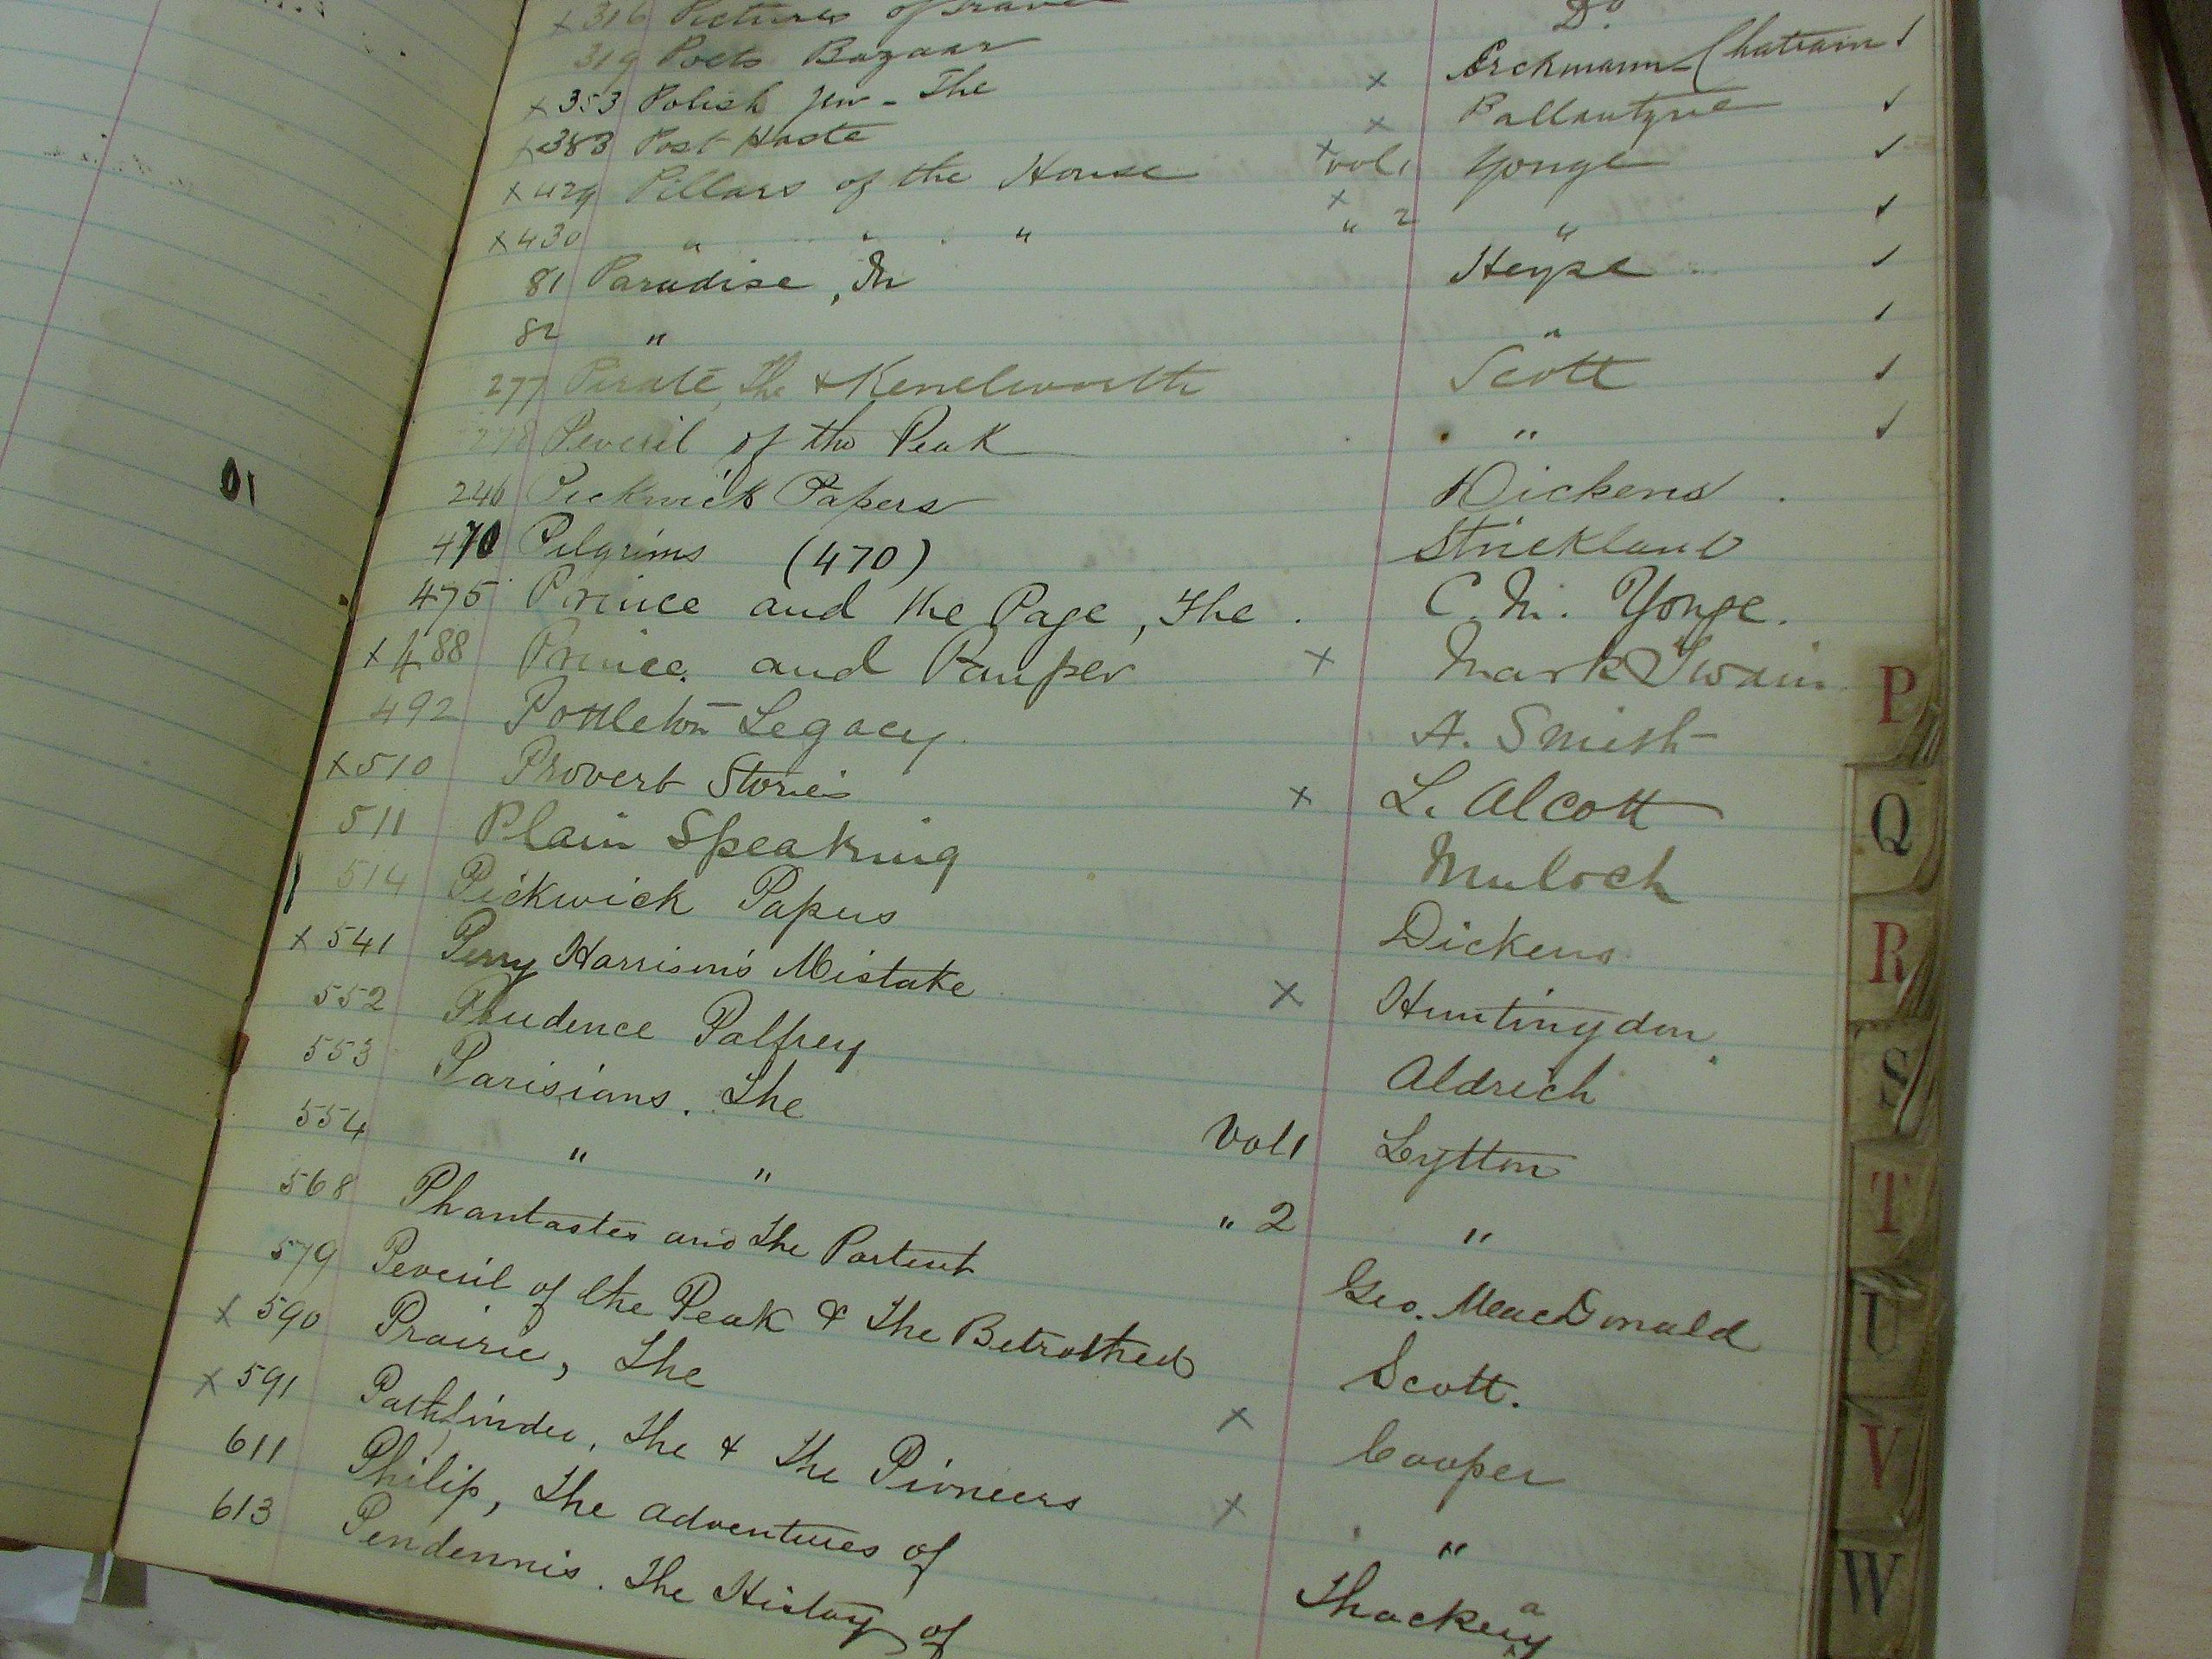 x 316 Pictures of Travel Do.
319 Poets Bazaar
x 353 Polish Jew - The x Erckmann-Chatrain ✓
x 383 Post Haste x Ballantyne ✓
x 429 Pillars of the House x vol 1 Yonge ✓
x 430 " " " x " 2 " ✓
81 Paradise, In Heyse ✓
82 " " ✓
277 Pirate, The & Kenelworth Scott ✓
278 Peveril of the Peak " ✓
246 Pickwick Papers Dickens .
470 Pilgrims (470) Strickland
475 Prince and the Page, The . C. M. Yonge.
x 488 Prince and Pauper x Mark Twain
492 Pottleton Legacy. A. Smith
x 510 Proverb Stories x L. Alcott
511 Plain Speaking Muloch
514 Pickwick Papers Dickens
x 541 Perry Harrison's Mistake x Huntingdon.
552 Prudence Palfrey Aldrich
553 Parisians. The Vol 1 Lytton
554 " " " 2 "
568 Phantastes and The Portent Geo. MacDonald
579 Peveril of the Peak & The Betrothed Scott.
x 590 Prairie, The x Cooper
x 591 Pathfinder, The & The Pioneers x "
611 Philip, The adventures of Thackeray
613 Pendennis. The History of
01
P
Q
R
S
T
U
V
W